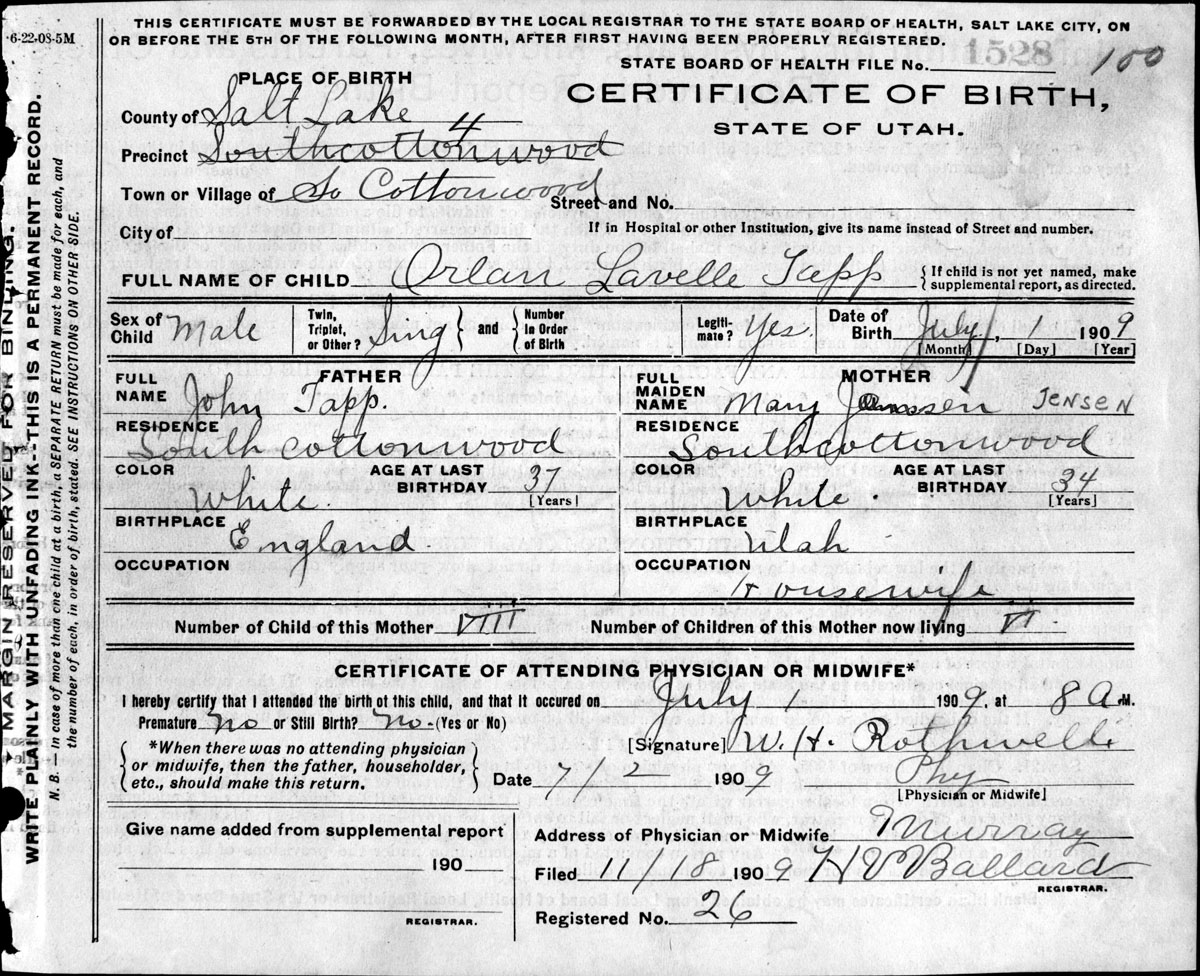 THIS CERTIFICATE MUST BE FORWARDED BY THE LOCAL REGISTRAR TO THE STATE BOARD OF HEALTH, SALT LAKE CITY, ON
6-22-08-5M
OR BEFORE THE 5TH OF THE FOLLOWING MONTH, AFTER FIRST HAVING BEEN PROPERLY REGISTERED.
STATE BOARD OF HEALTH FILE No. 1528 100
PLACE OF BIRTH
CERTIFICATE OF BIRTH,
STATE OF UTAH.
County of Salt Lake
4
Precinct Southcottonwood
Town or Village of So Cottonwood Street and No.
City of If in Hospital or other Institution, give its name instead of Street and number.
FULL NAME OF CHILD Orlan Lavelle Tapp {If child is not yet named, make
supplemental report, as directed.
Sex of Child Male Twin, Triplet, or Other? Sing } and { Number in Order of Birth Legiti-mate? Yes Date of Birth July, 1 1909
[Month] [Day] [Year]
FATHER MOTHER
FULL NAME John Tapp. FULL MAIDEN NAME Mary Jensen JENSEN
RESIDENCE RESIDENCE
South cottonwood Southcottonwood
COLOR White. AGE AT LAST BIRTHDAY 37 [Years] COLOR White. AGE AT LAST BIRTHDAY 34 [Years]
BIRTHPLACE BIRTHPLACE
England Utah
OCCUPATION OCCUPATION
Housewife
Number of Child of this Mother VIII Number of Children of this Mother now living VI
CERTIFICATE OF ATTENDING PHYSICIAN OR MIDWIFE*
I hereby certify that I attended the birth of this child, and that it occured on July 1 1909, at 8 A.M.
Premature no or Still Birth? no. (Yes or No)
{*When there was no attending physician
or midwife, then the father, householder,
etc., should make this return.}
[Signature] W. H. Rothwell
Date 7/2 1909 Phy
[Physician or Midwife]
Give name added from supplemental report
190
REGISTRAR.
Address of Physician or Midwife Murray
Filed 11/18 1909 HV Ballard
REGISTRAR.
Registered No. 26
MARGIN RESERVED FOR BINDING.
WRITE PLAINLY WITH UNFADING INK---THIS IS A PERMANENT RECORD.
N. B. In case of more than one child at a birth, a SEPARATE RETURN must be made for each, and
the number of each, in order of birth, stated. SEE INSTRUCTIONS ON OTHER SIDE.